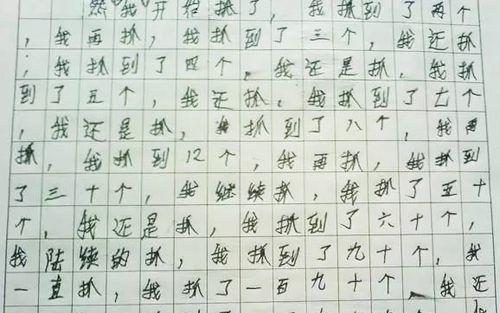 然我开始抓了，我抓到了两个
，我再抓，我抓到了三个，我还抓
，我抓到了四个，我还是抓，我抓
到了五个，我还抓，我抓到了七个
，我还是抓，我抓到了八个，我
抓，我抓到12个，我再抓，我抓到
了三十个，我继续抓，我抓了五十
个，我还是抓，我抓到了六十个，
我陆续的抓，我抓到了九十个，我
一直抓，我抓了一百九十个，我还